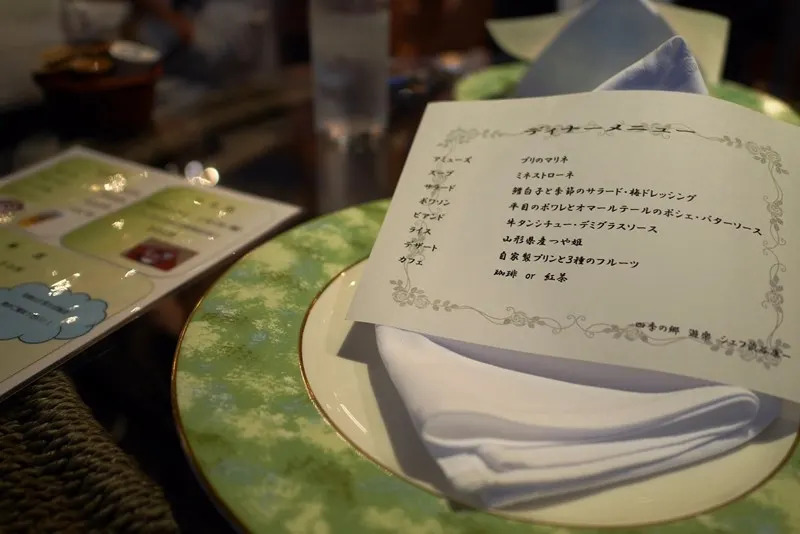 ディナーメニュー
アミューズ ブリのマリネ
スープ ミネストローネ
サラード 鱈白子と季節のサラード・梅ドレッシング
ポワソン 平目のポワレとオマールテールのポシェ・バターソース
ビアンド 牛タンシチュー・デミグラスソース
ライス 山形県産つや姫
デザート 自家製プリンと3種のフルーツ
カフェ 珈琲 or 紅茶
四季の郷 シェフ